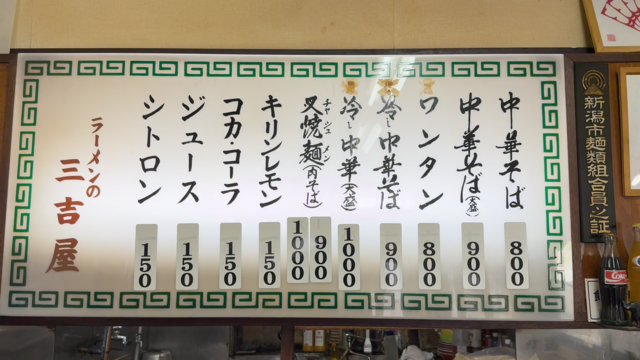 中華そば 800
中華そば(大盛) 900
ワンタン 800
冷し中華そば 900
冷し中華(大盛) 1000
チャシュメン
叉焼麺(肉そば) 900 1000
キリンレモン 150
コカ・コーラ 150
ジュース 150
シトロン 150
ラーメンの
三吉屋
新潟市麺類組合員之証
Coke